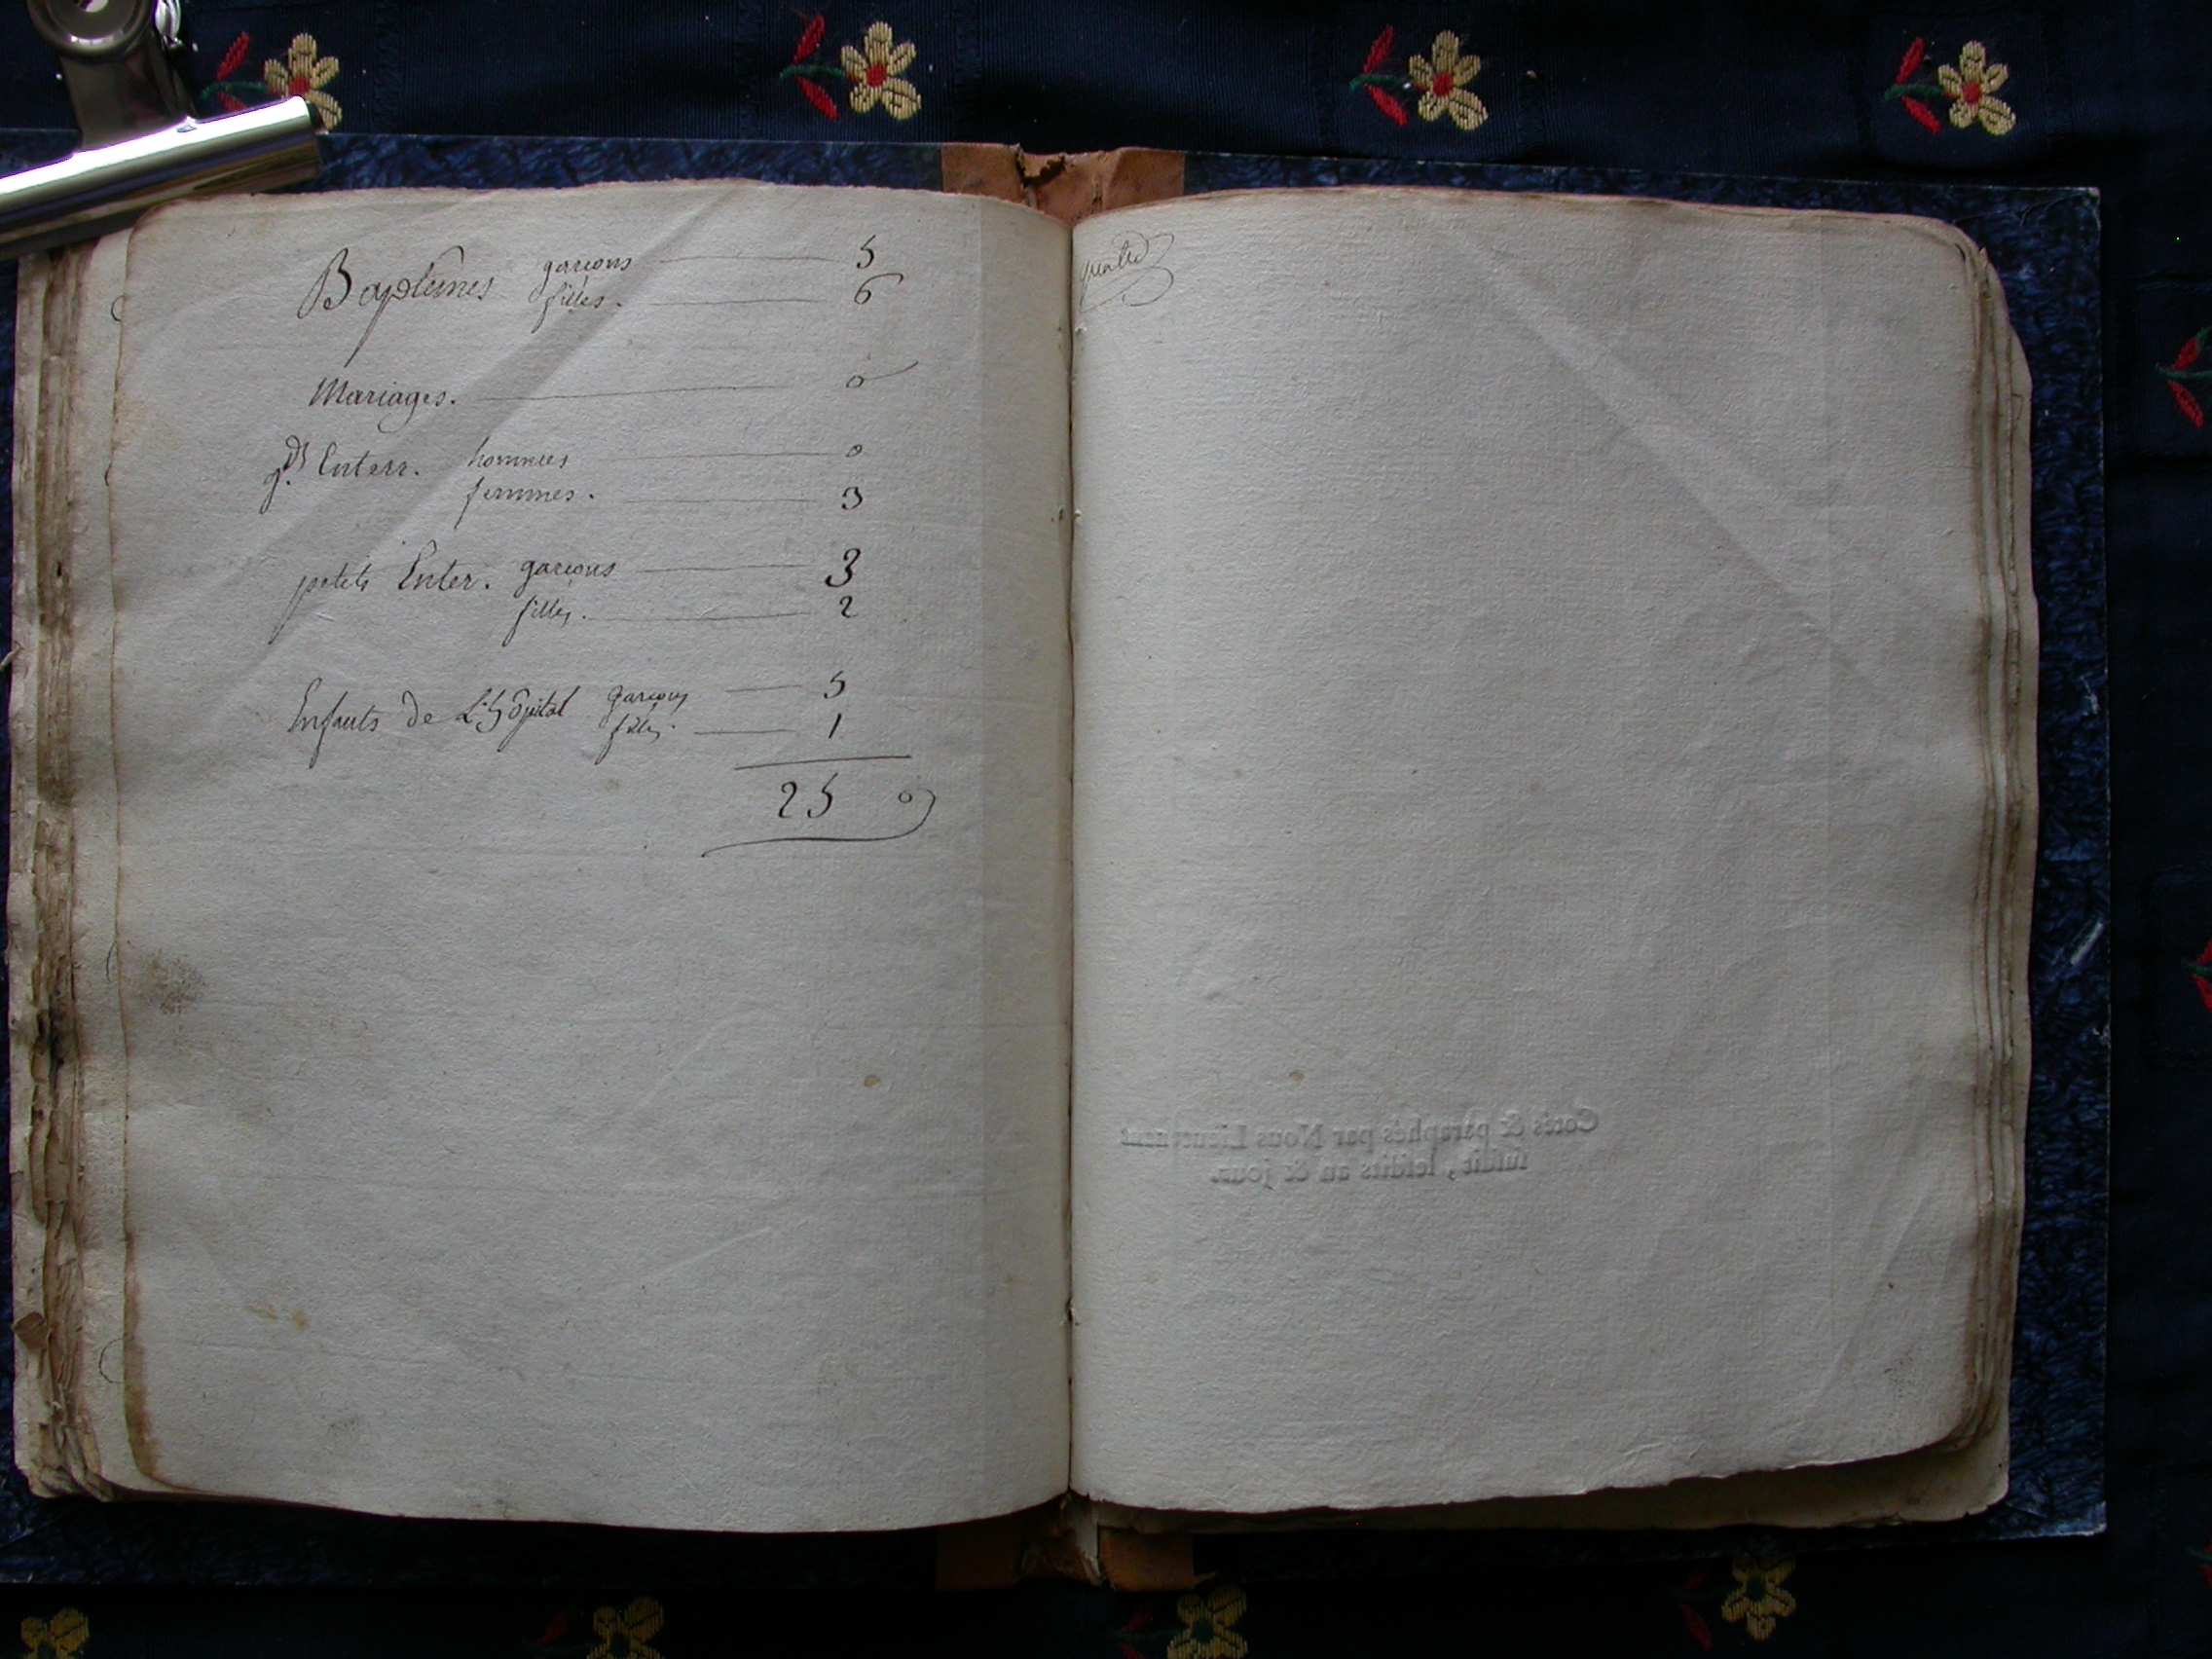 Baptêmes garçons 5
filles. 6
Mariages. 0
gds Enterr. hommes 0
femmes. 3
petits Enter. garçons 3
filles. 2
Enfants de L'hôpital garçons 5
filles. 1
25
quatre
Cotés & paraphés par Nous Lieutenant
susdit, lesdits an & jour.